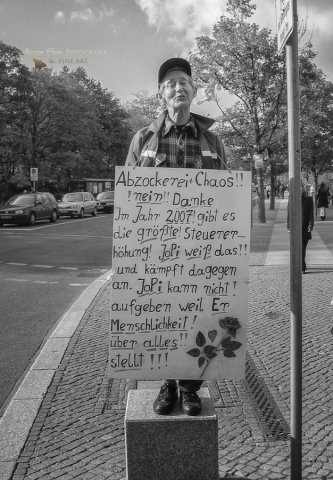 & FINE ART
Abzockerei+Chaos!!
!nein!! Danke
Im Jahr 2007! gibt es
die größte! Steuerer-
höhung! JoPi weiß das!!
und kämpft dagegen
an. JoPi kann nicht!
aufgeben weil Er
Menschlichkeit!
über alles!!
stellt!!!